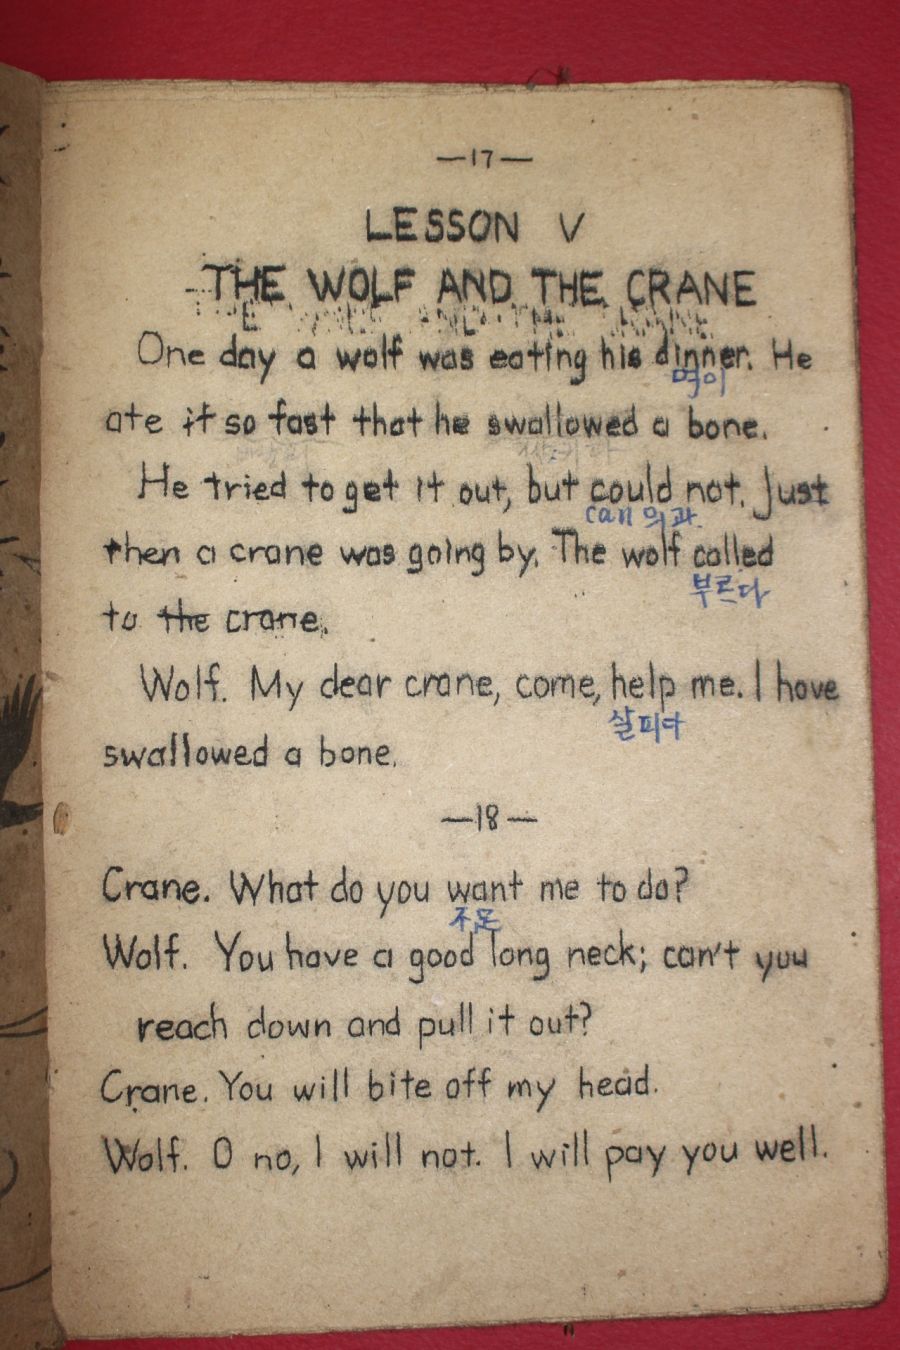 —17—
LESSON V
THE WOLF AND THE CRANE
One day a wolf was eating his dinner. He
먹이
ate it so fast that he swallowed a bone.
He tried to get it out, but could not. Just
can의 과.
then a crane was going by. The wolf called
부르다
to the crane.
Wolf. My dear crane, come, help me. I have
살피다
swallowed a bone.
—18—
Crane. What do you want me to do?
不足
Wolf. You have a good long neck; can't you
reach down and pull it out?
Crane. You will bite off my head.
Wolf. O no, I will not. I will pay you well.